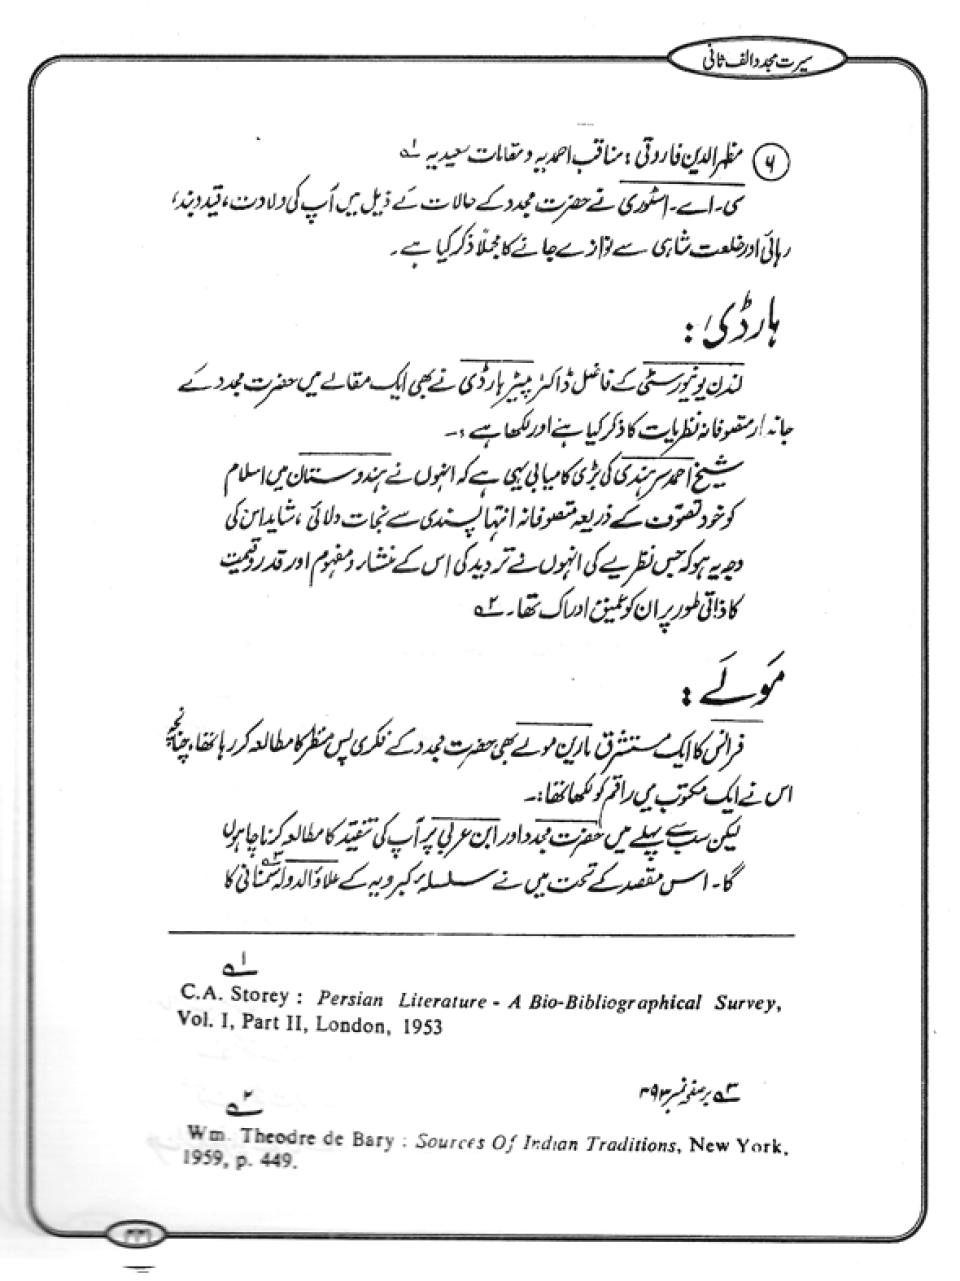 سیرت مجدد الف ثانی
۶ مظہر الدین فاروقی : مناقب احمدیہ و مقامات سعیدیہ ۱ے
سی۔ اے۔ اسٹوری نے حضرت مجدد کے حالات کے ذیل میں آپ کی ولادت، قید و بند،
رہائی اور خلعت شاہی سے نوازے جانے کا مجملاً ذکر کیا ہے۔
ہارڈی :
لندن یونیورسٹی کے فاضل ڈاکٹر پیٹر ہارڈی نے بھی ایک مقالے میں حضرت مجدد کے
جاندار متصوفانہ نظریات کا ذکر کیا ہے اور لکھا ہے :۔
شیخ احمد سرہندی کی بڑی کامیابی یہی ہے کہ انہوں نے ہندوستان میں اسلام
کو خود تصوّف کے ذریعہ متصوفانہ انتہا پسندی سے نجات دلائی، شاید اس کی
وجہ یہ ہو کہ جس نظریے کی انہوں نے تردید کی اس کے منشاء و مفہوم اور قدر و قیمت
کا ذاتی طور پر ان کو عمیق ادراک تھا۔ ۲ے
مَولے :
فرانس کا ایک مستشرق مارین مولے بھی حضرت مجدد کے فکری پس منظر کا مطالعہ کر رہا تھا، چنانچہ
اس نے ایک مکتوب میں راقم کو لکھا تھا:۔
لیکن سب سے پہلے میں حضرت مجدد اور ابن عربی پر آپ کی تنقید کا مطالعہ کرنا چاہوں
گا۔ اس مقصد کے تحت میں نے سلسلۂ کبرویہ کے علاؤ الدولہ سمنانی ۳ے کا
۱ے
C.A. Storey : Persian Literature - A Bio-Bibliographical Survey,
Vol. I, Part II, London, 1953
۳ے بر صفحہ نمبر ۳۹۳
۲ے
Wm. Theodre de Bary : Sources Of Indian Traditions, New York,
1959, p. 449.